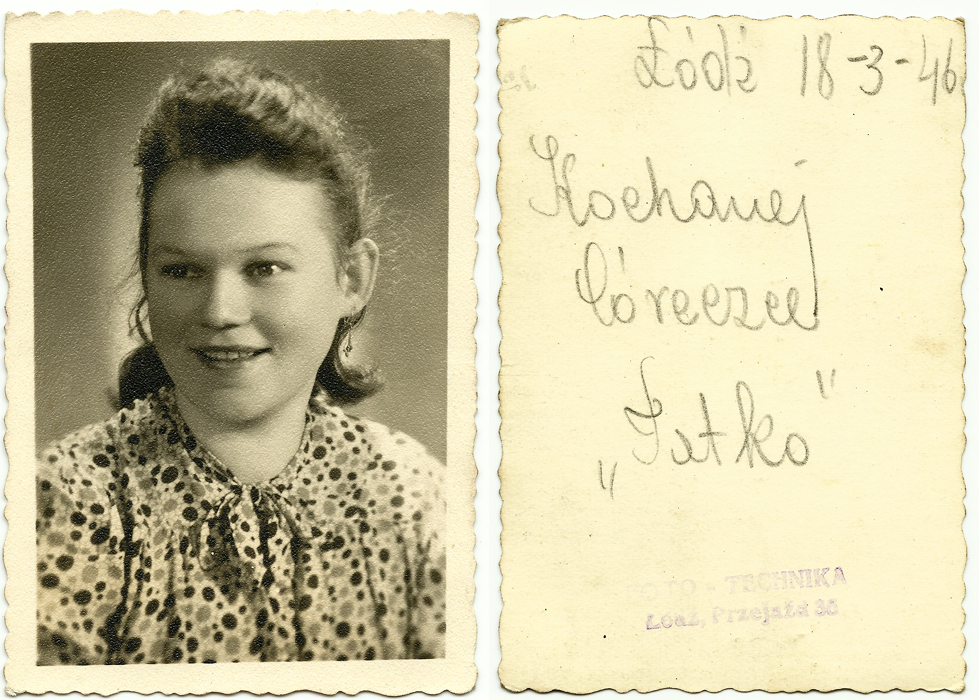 Łódź 18-3-46
Kochanej
Córeczce
„Tatko"
FOTO - TECHNIKA
Łódź, Przejazd 36